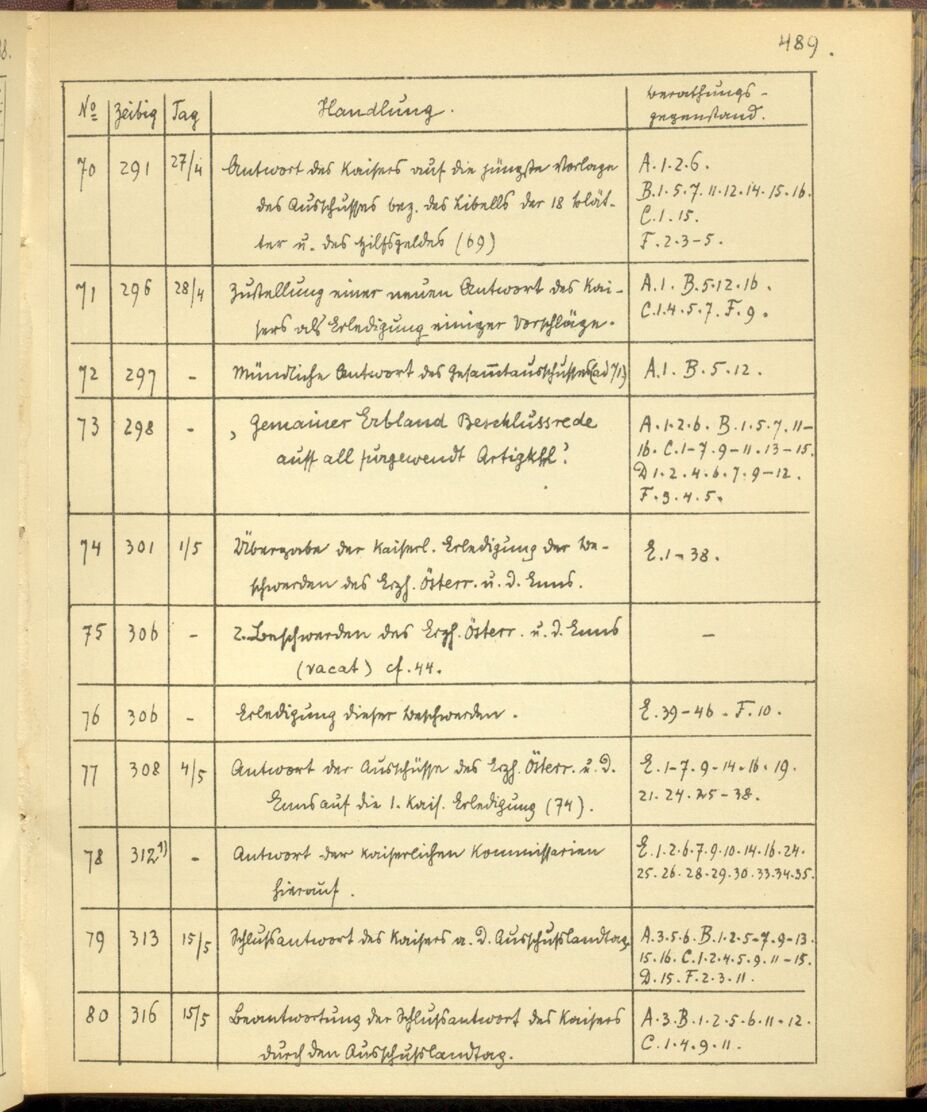 489.
No Zeibig Tag Handlung. Berathungs-
gegenstand.
70 291 27/4 Antwort des Kaisers auf die jüngste Vorlage
des Ausschusses bez. des Libells der 18 Blät-
ter u. des Hilfsgeldes (69)
A.1.2.6.
B.1.5.7.11.12.14.15.16.
C.1.15.
F.2.3-5.
71 296 28/4 Zustellung einer neuen Antwort des Kai-
sers als Erledigung einiger Vorschläge.
A.1. B.5.12.16.
C.1.4.5.7. F.9.
72 297 - Mündliche Antwort des Gesammtausschusses (ad 71) A.1. B.5.12.
73 298 - "Gemainer Erbland Beschlussrede
auff all furgewendt Artigkhl."
A.1.2.6. B.1.5.7.11-
16. C.1-7.9-11.13-15.
D1.2.4.6.7.9-12.
F.3.4.5.
74 301 1/5 Übergabe der kaiserl. Erledigung der Be-
schwerden des Erzh. Österr. u. d. Enns.
E.1-38.
75 306 - 2. Beschwerden des Erzh. Österr. u. d. Enns
(vacat) cf. 44.
-
76 306 - Erledigung dieser Beschwerden. E.39-46. F.10.
77 308 4/5 Antwort der Ausschüsse des Erzh. Österr. u. d.
Enns auf die 1. Kais. Erledigung (74).
E.1-7.9-14.16.19.
21.24.25-38.
78 312 1) - Antwort der kaiserlichen Kommissarien
hierauf.
E.1.2.6.7.9.10.14.16.24.
25.26.28.29.30.33.34.35.
79 313 15/5 Schlußantwort des Kaisers a. d. Ausschußlandtag.
A.3.5.6. B.1.2.5-7.9-13.
15.16. C.1.2.4.5.9.11-15.
D.15. F.2.3.11.
80 316 15/5 Beantwortung der Schlußantwort des Kaisers
durch den Ausschußlandtag.
A.3.B.1.2.5.6.11-12.
C.1.4.9.11.